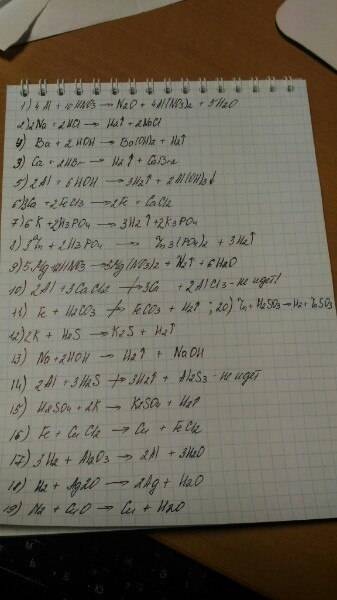 1) 4Al + 10HNO3 → N2O + 4Al(NO3)2 + 5H2O
2) 2Na + 2HCl → H2↑ + 2NaCl
4) Ba + 2HOH → Ba(OH)2 + H2↑
3) Ca + 2HBr → H2↑ + CaBr2
5) 2Al + 6HOH → 3H2↑ + 2Al(OH)3↓
6) 3Ca + 2FeCl3 → 2Fe + CaCl2
7) 6K + 2H3PO4 → 3H2↑ + 2K3PO4
8) 3Zn + 2H3PO4 → Zn3(PO4)2 + 3H2↑
9) 5Mg + 12HNO3 → 5Mg(NO3)2 + N2↑ + 6H2O
10) 2Al + 3CaCl2 ↛ 3Ca + 2AlCl3 - не идет!
11) Fe + H2CO3 ↛ FeCO3 + H2↑ ; 20) Zn + H2SO4 → H2 + ZnSO4
12) 2K + H2S → K2S + H2↑
13) Na + 2HOH → H2↑ + NaOH
14) 2Al + 3H2S ↛ 3H2↑ + Al2S3 - не идет
15) H2SO4 + 2K → K2SO4 + H2↑
16) Fe + CuCl2 → Cu + FeCl2
17) 3H2 + Al2O3 → 2Al + 3H2O
18) H2 + Ag2O → 2Ag + H2O
19) H2 + CuO → Cu + H2O